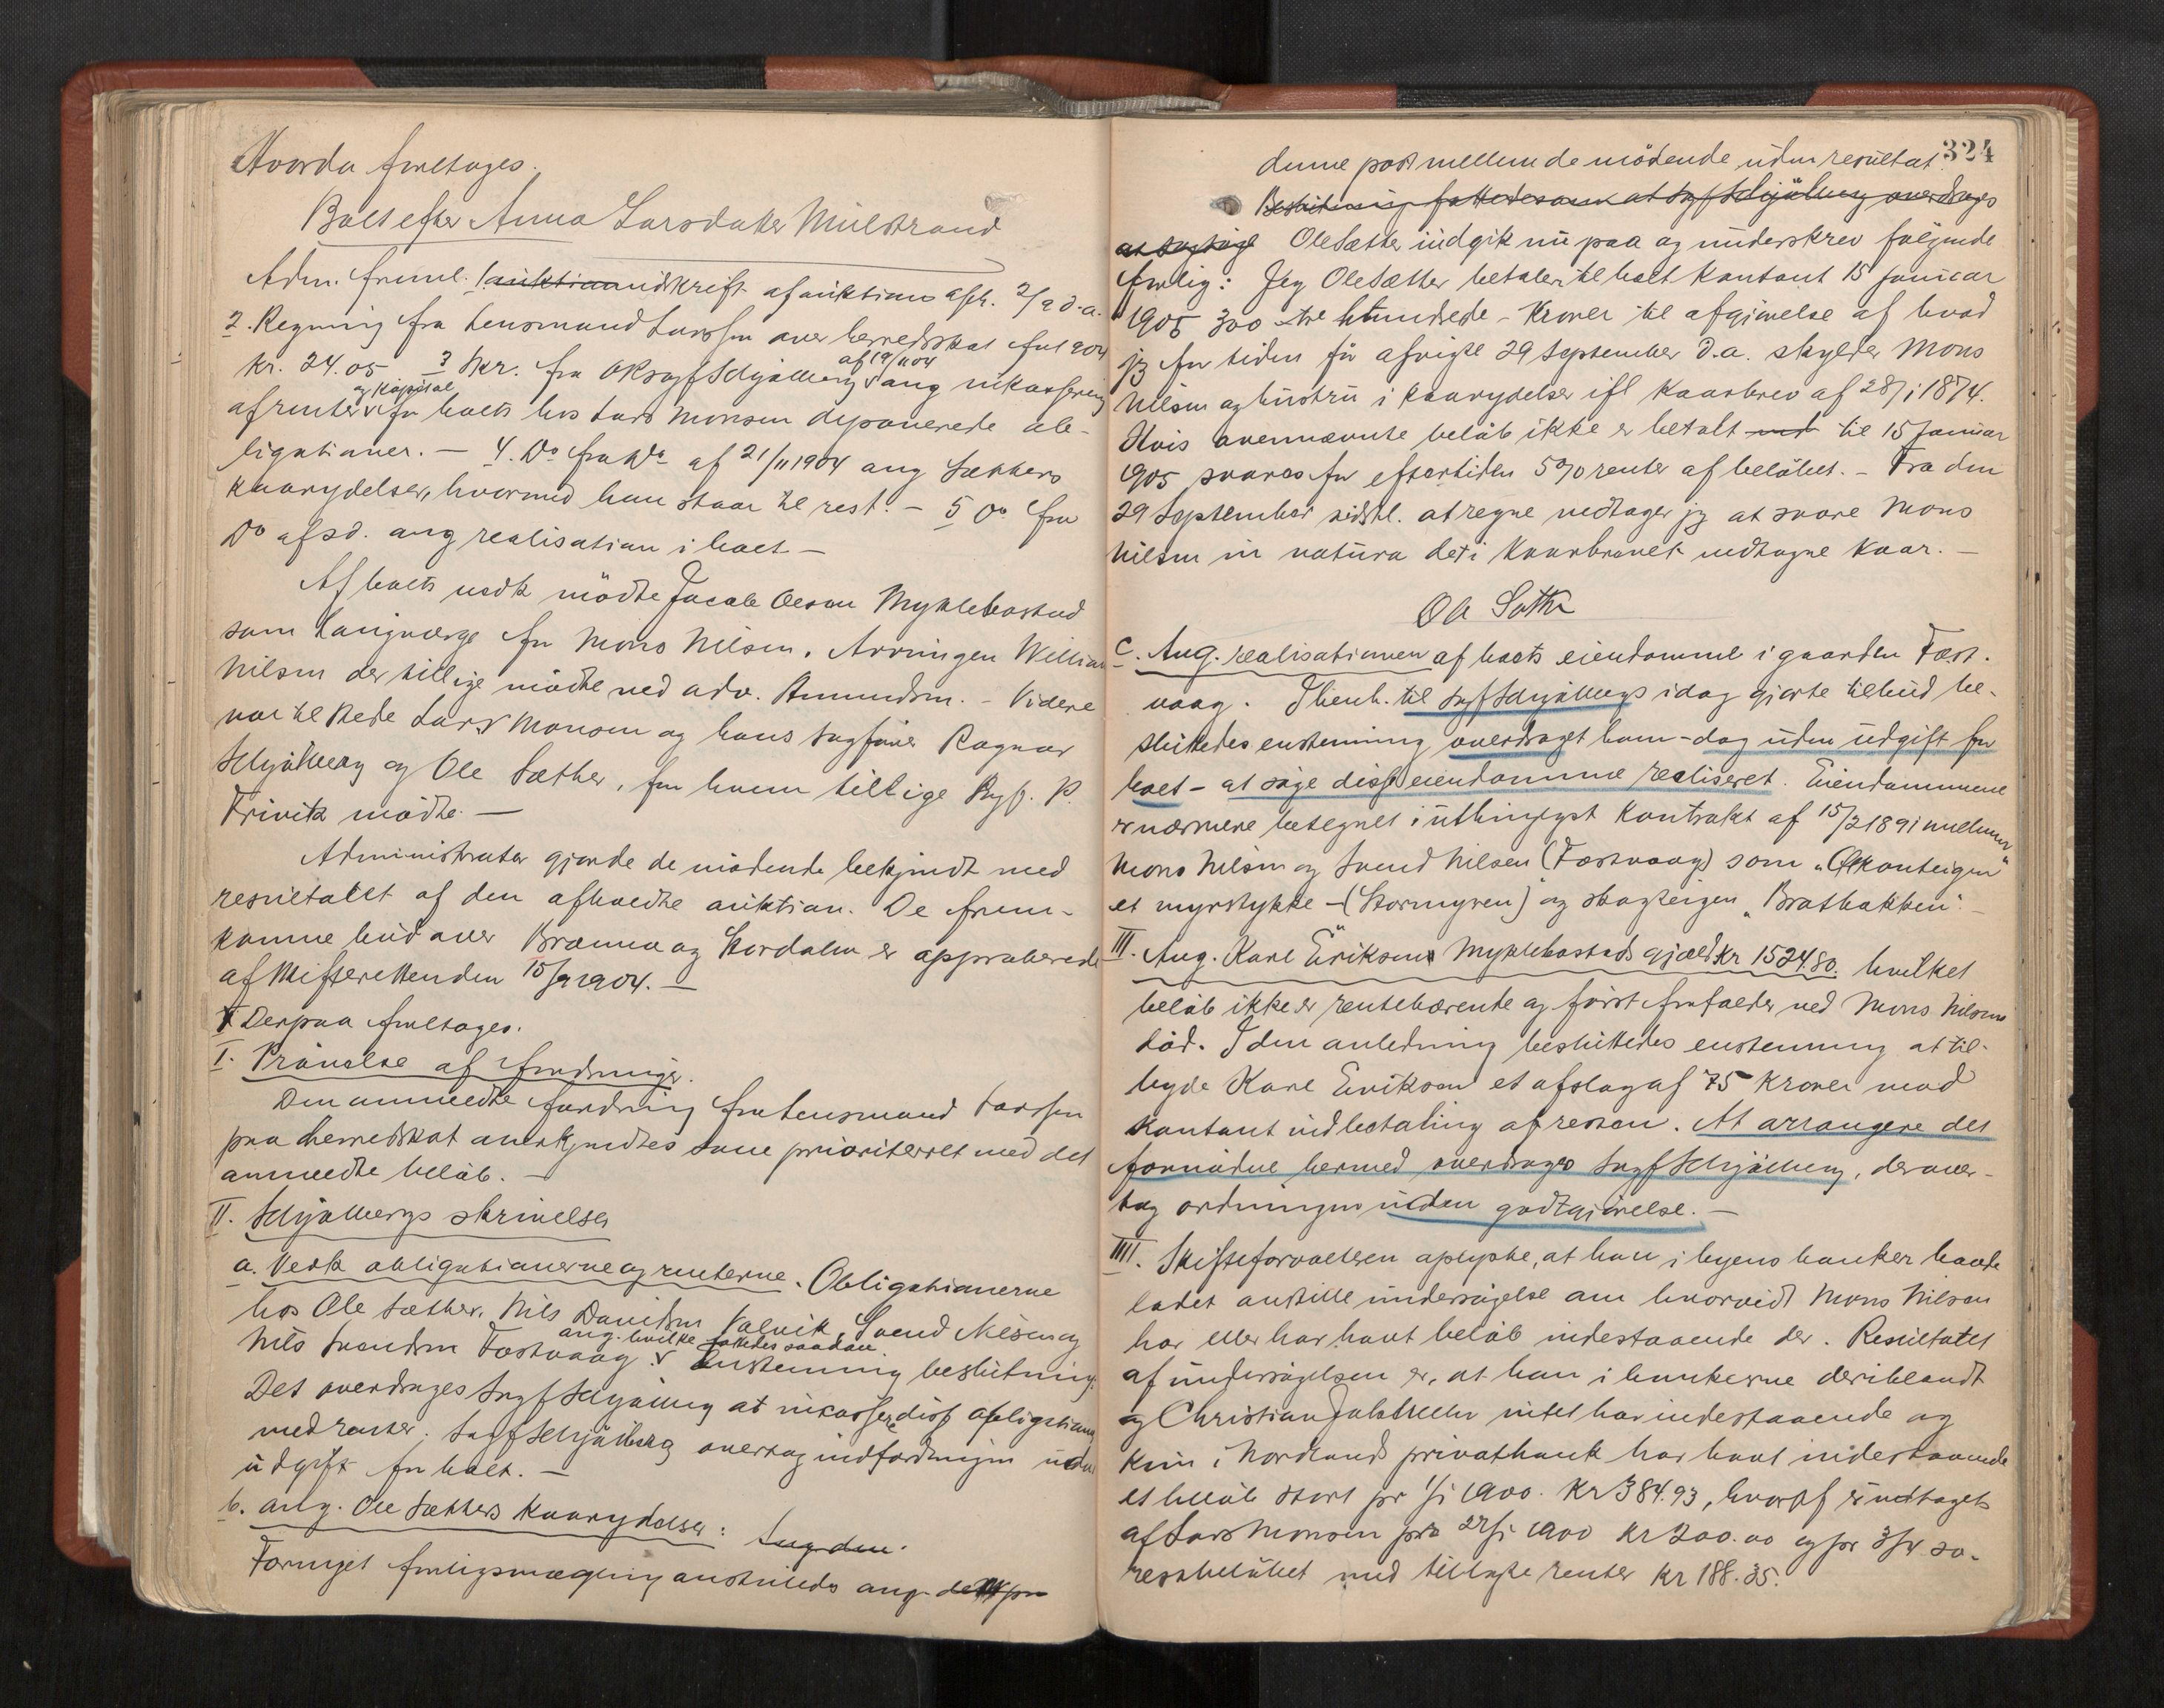 Hvorda foretages.
Boet efter Anna Larsdatter Mulstrand
Adm. freml. 1 auktionudskrift af auktions afh. 2/9 d.a.
2. Regning fra Lensmand Larssen over herredsskat for 1904
kr. 24.05 3 Skr. fra ORsagf Schjølberg af 19/11 04 ang inkassering
af renter og kapital for boets hos Lars Monsen deponerede ob-
ligationer. — 4. Do fra Do af 21/11 1904 ang Sæthers
kaarydelser, hvormed han staar til rest. — 5 Do fra
Do af s.d. ang realisation i boet —
Af boets vedk mødte Jacob Olsen Myklebostad
som Laugværge for Mons Nilsen. Arvingen William
Nilsen der tillige mødte ved adv. Amundsen. - Videre
var til stede Lars Monsen og hans sagfører Ragnar
Schjølberg og Ole Sæther, for hvem tillige Sagf. P.
Trivitz mødte. —
Administrator gjorde de mødende bekjendt med
resultatet af den afholdte auktion. De frem-
komne bud over Brænna og Stordalen er approberede
af Skifteretten den 15/9 1904. —
Derpaa foretages.
I. Prøvelse af fordringer.
Den anmeldte fordring fra Lensmand Larssen
paa herredskat anerkjendtes som prioriterret med det
anmeldte beløb. —
II. Schjølbergs skrivelser
a. Vedk obligationerne og renterne. Obligationerne
hos Ole Sæther, Nils Davidsen Valvik, Svend Nilsen og
Nils Svendsen Tostvaag. ang. hvilke fattedes saadan enstemmig beslutning:
Det overdrages Sagf Schjølberg at inkassere disse obligationer
med renter. Sagf Schjølberg overtog indfordringen uden
udgift for boet. —
b. ang. Ole Sæthers kaarydelser: Sagden.
Fornyet forligsmægling anstilledes ang. denne
324
denne post mellem de mødende uden resultat.
Beslutning fattedes om at Sagf Schjølberg overdrages
at sagsøge Ole Sæther indgik nu paa og underskrev følgende
forlig: Jeg Ole Sæther betaler til boet kontant 15 januar
1905 300 - tre hundrede - Kroner til afgjørelse af hvad
jeg for tiden før afvigte 29 September d.a. skylder Mons
Nilsen og hustru i kaarydelser ifl Kaarbrev af 28/1 1874.
Hvis ovennævnte beløb ikke er betalt ved til 15 Januar
1905 svares for eftertiden 5% renter af beløbet. - Fra den
29 September sidstl. at regne vedtager jeg at svare Mons
Nilsen in natura det i Kaarbrevet vedtagne Kaar. —
Ole Sæther
C. Ang. realisationen af boets eiendomme i gaarden Tost-
vaag. I henh. til Sagf Schjølbergs idag gjorte tilbud be-
sluttedes enstemmig overdraget ham - dog uden udgift for
boet - at søge disse eiendomme realiseret. Eiendommene
er nærmere betegnet i utinglyst kontrakt af 15/2 1891 mellem
Mons Nilsen og Svend Nilsen (Tostvaag) som "Økonteigen"
et myrstykke - (Stormyren) og skogteigen "Bratbakken". -
III. Ang. Karl Eriksens Myklebostads gjæld kr 1524.80. hvilket
beløb ikke er rentebærende og først forfalder ved Mons Nilsens
død. I den anledning besluttedes enstemmig at til-
byde Karl Eriksen et afslag af 75 Kroner mod
kontant indbetaling af resten. At arrangere det
fornødne hermed overdrages Sagf Schjølberg, der over-
tog ordningen uden godtgjørelse. —
IIII. Skifteforvalteren oplyste, at han i byens banker havde
ladet anstille undersøgelse om hvorvidt Mons Nilsen
har eller har havt beløb indestaaende der. Resultatet
af undersøgelsen er, at han i bankerne deriblandt
og Christian Jakhelln intet har indestaaende og
kun i Nordlands privatbank har havt indestaaende
et beløb stort pr 1/1 1900. Kr 384.93, hvoraf er udtaget
af Lars Monsen pr 27/1 1900 kr 200.00 og pr 3/4 s.a.
restbeløbet med tillagte renter kr 188.35.